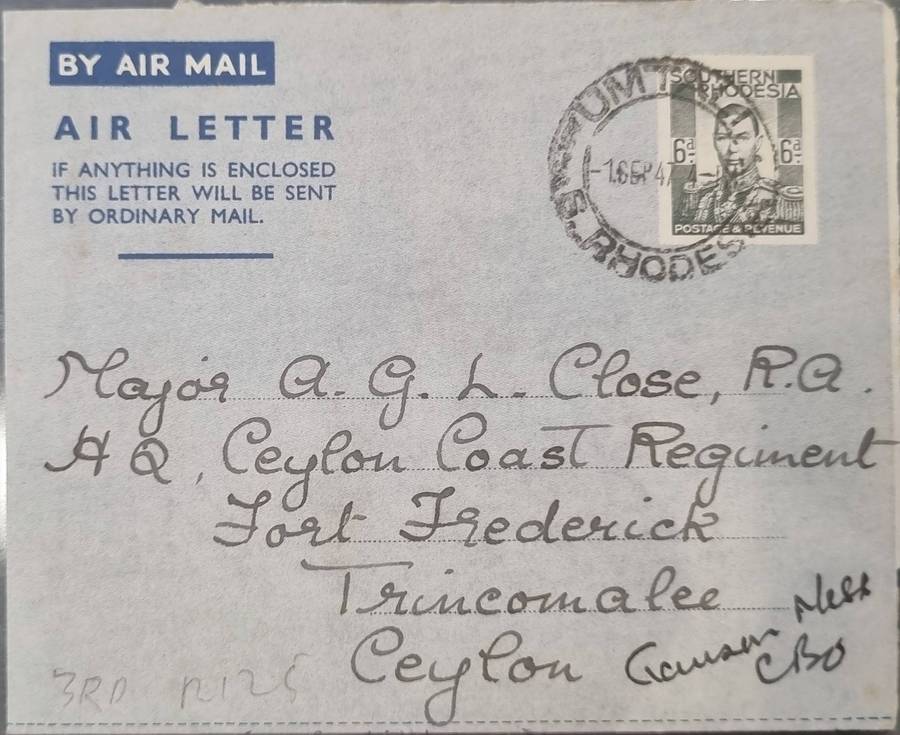 BY AIR MAIL
AIR LETTER
IF ANYTHING IS ENCLOSED
THIS LETTER WILL BE SENT
BY ORDINARY MAIL.
SOUTHERN
RHODESIA
6d 6d
POSTAGE & REVENUE
UMT
S. RHODESIA
1 SEP 47
Major A. G. L. Close, R.A.
HQ, Ceylon Coast Regiment
Fort Frederick
Trincomalee
Ceylon
Mess
CBO
3RD R125